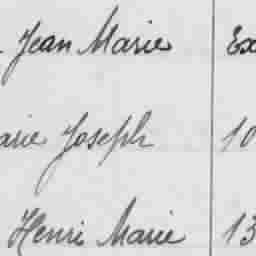 Jean Marie Ex
arie Joseph 10
Henri Marie 13